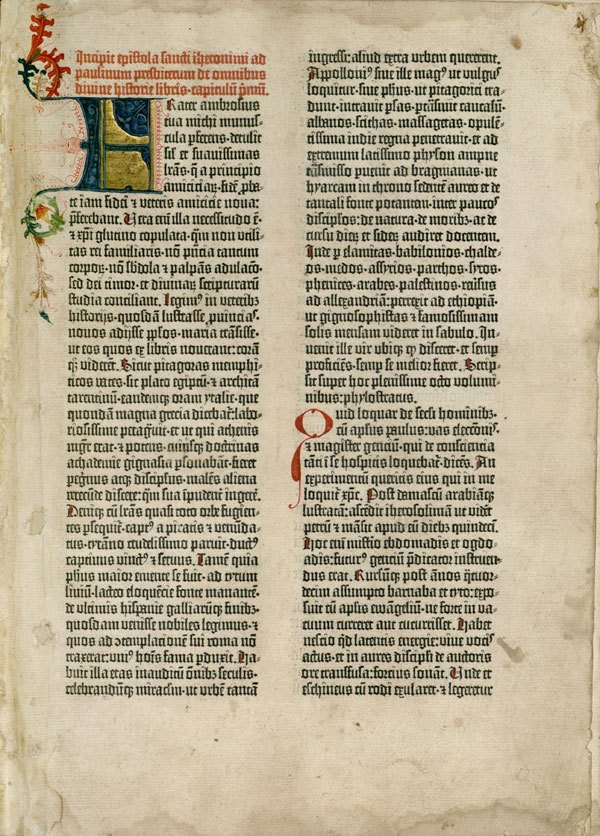 Incipit epistola sancti iheronimi ad
paulinum presbiterum de omnibus
divine historie libris·capitulū pmū.
Frater ambrosius
tua michi munus-
cula pferens·detulit
sil et suavissimas
lrās·q̄ a principio
amiciciaȝ·fidē pba-
te iam fidei et veteris amicicie nova:
pferebant. Vera eni illa necessitudo ē·
et xpi glutino copulata·qm non utili-
tas rei familiaris·nō pncia tantum
corpoȝ·nō sbdola et palpās adulacō·
sed dei timor·et divinaȝ scripturarū
studia conciliant. Legimꝰ in veteribȝ
historijs·quosdā lustrasse puīcias·
novos adijsse pplos·maria trāsisse·
ut eos quos ex libris noverant: corā
qȝ viderēt. Sicut pitagoras memphi-
ticos vates·sic plato egiptū·et architā
tarentinū·eandemqȝ oram ytalie·que
quondā magna grecia dicebat̄: labo-
riosissime peragvit·et ut qui athenis
mgr̄ erat·et potens·cuiusqȝ doctrinas
achademie gignasia psonabāt·fieret
pegrinus atqȝ discipulus·malēs aliena
verecunde discere: qm sua ipudent̄ ingerē.
Deniqȝ cū lrās quasi toto orbe fugien-
tes psequit̄·captꝰ a piratis et venūda-
tus·tyrāno crudelissimo paruit·ductꝰ
captivus vinctꝰ et servus. Tamē quia
phus maior emente se fuit·ad tytum
liviū·lacteo eloquēcie fonte manantē·
de ultimis hispanie galliarūqȝ finibȝ·
quosdam venisse nobiles legimus·et
quos ad ꝯtemplacionē sui roma nō
traxerat: uniꝰ hoīs fama pduxit. Ha-
buit illa etas inauditū ōnibȝ seculis·
celebrandūqȝ miraclm·ut urbē tantā
ingressi: aliud extra urbem quererent.
Appolloniꝰ sive ille magꝰ ut vulgus
loquitur·sive phus·ut pitagorici tra-
dunt·intravit psas·ptrāsivit caucasū·
albanos·scithas·massagetas·opulē-
tissima indie regna penetravit·et ad
extremum latissimo physon ampne
tūsmisso puenit ad bragmanas·ut
hyarcam in throno sedentē aureo et de
tantali fonte potantem·inter paucos
discipulos: de natura·de moribȝ·ac de
cursu dieȝ et sideȝ audiret docentem.
Inde p elamitas·babilonios·chalde-
os·medos·assyrios·parthos·syros·
phenices·arabes·palestinos·reversus
ad allexandriā: perrexit ad ethiopiā·
ut gignosophistas et famosissimam
solis mensam videret in sabulo. In-
venit ille vir ubiqȝ qd disceret·et semp
proficiēs·semp se melior fieret. Scrip-
sit super hoc plenissime octo volumi-
nibus: phylostratus.
Quid loquar de secli hominibȝ·
cū apostolus paulus: vas electōnis·
et magister genciū·qui de consciencia
tāti ī se hospitis loquebat̄·dicēs. An
experimentū queritis eius qui in me
loquit̄ xpc. Post damascū arabiāqȝ
lustratā: ascēdit iherosolimā ut vidēt
petrū et māsit apud eū diebȝ quindecī.
Hoc enī misterio ebdomadis et ogdo-
adis: futurꝰ genciū pdicator instruen-
dus erat. Rursūqȝ post ānos qtuor-
decim assumpto barnaba et tyto: expo-
suit cū aplis ewāgeliū·ne forte in va-
cuum curreret aut cucurrisset. Habet
nescio qd latentis energie: vive vocis
actus·et in aures discipli de auctoris
ore transfusa: forcius sonat. Unde et
eschineus cū rodi exularet·et legeretur